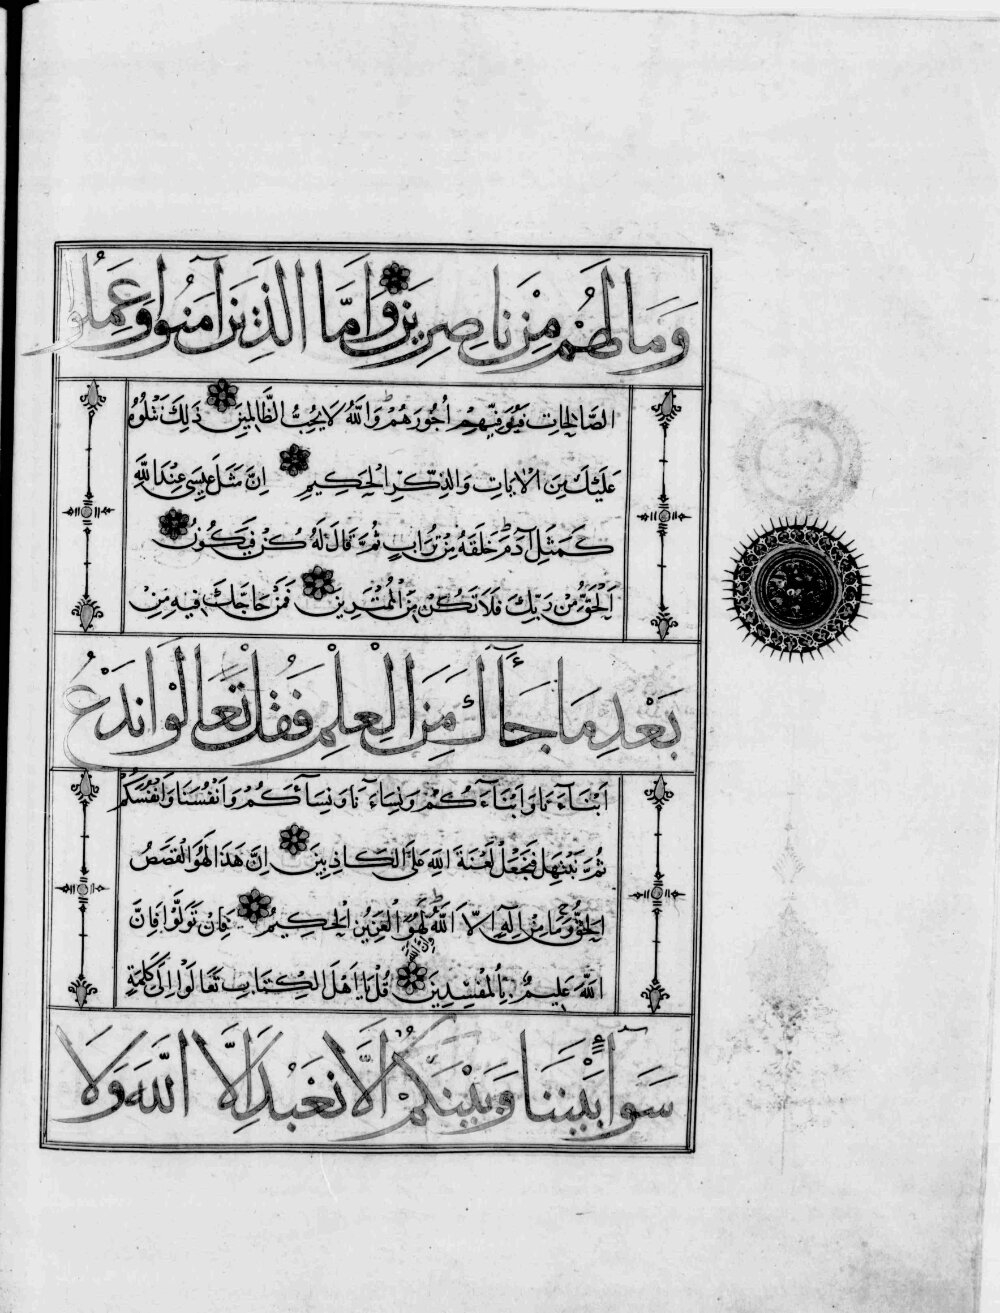 وَمَا لَهُمْ مِنْ نَاصِرِينَ وَأَمَّا الَّذِينَ آمَنُوا وَعَمِلُوا
الصَّالِحَاتِ فَيُوَفِّيهِمْ أُجُورَهُمْ وَاللَّهُ لَا يُحِبُّ الظَّالِمِينَ ذَلِكَ نَتْلُوهُ
عَلَيْكَ مِنَ الْآيَاتِ وَالذِّكْرِ الْحَكِيمِ إِنَّ مَثَلَ عِيسَى عِنْدَ اللَّهِ
كَمَثَلِ آدَمَ خَلَقَهُ مِنْ تُرَابٍ ثُمَّ قَالَ لَهُ كُنْ فَيَكُونُ
الْحَقُّ مِنْ رَبِّكَ فَلَا تَكُنْ مِنَ الْمُمْتَرِينَ فَمَنْ حَاجَّكَ فِيهِ مِنْ
بَعْدِ مَا جَآءَكَ مِنَ الْعِلْمِ فَقُلْ تَعَالَوْا نَدْعُ
أَبْنَآءَنَا وَأَبْنَآءَكُمْ وَنِسَآءَنَا وَنِسَآءَكُمْ وَأَنْفُسَنَا وَأَنْفُسَكُمْ
ثُمَّ نَبْتَهِلْ فَنَجْعَلْ لَعْنَةَ اللَّهِ عَلَى الْكَاذِبِينَ إِنَّ هَذَا لَهُوَ الْقَصَصُ
الْحَقُّ وَمَا مِنْ إِلَهٍ إِلَّا اللَّهُ لَهُوَ الْعَزِيزُ الْحَكِيمُ فَإِنْ تَوَلَّوْا فَإِنَّ
وَإِنَّ اللَّهَ
اللَّهَ عَلِيمٌ بِالْمُفْسِدِينَ قُلْ يَا أَهْلَ الْكِتَابِ تَعَالَوْا إِلَى كَلِمَةٍ
سَوَآءٍ بَيْنَنَا وَبَيْنَكُمْ أَلَّا نَعْبُدَ إِلَّا اللَّهَ وَلَا